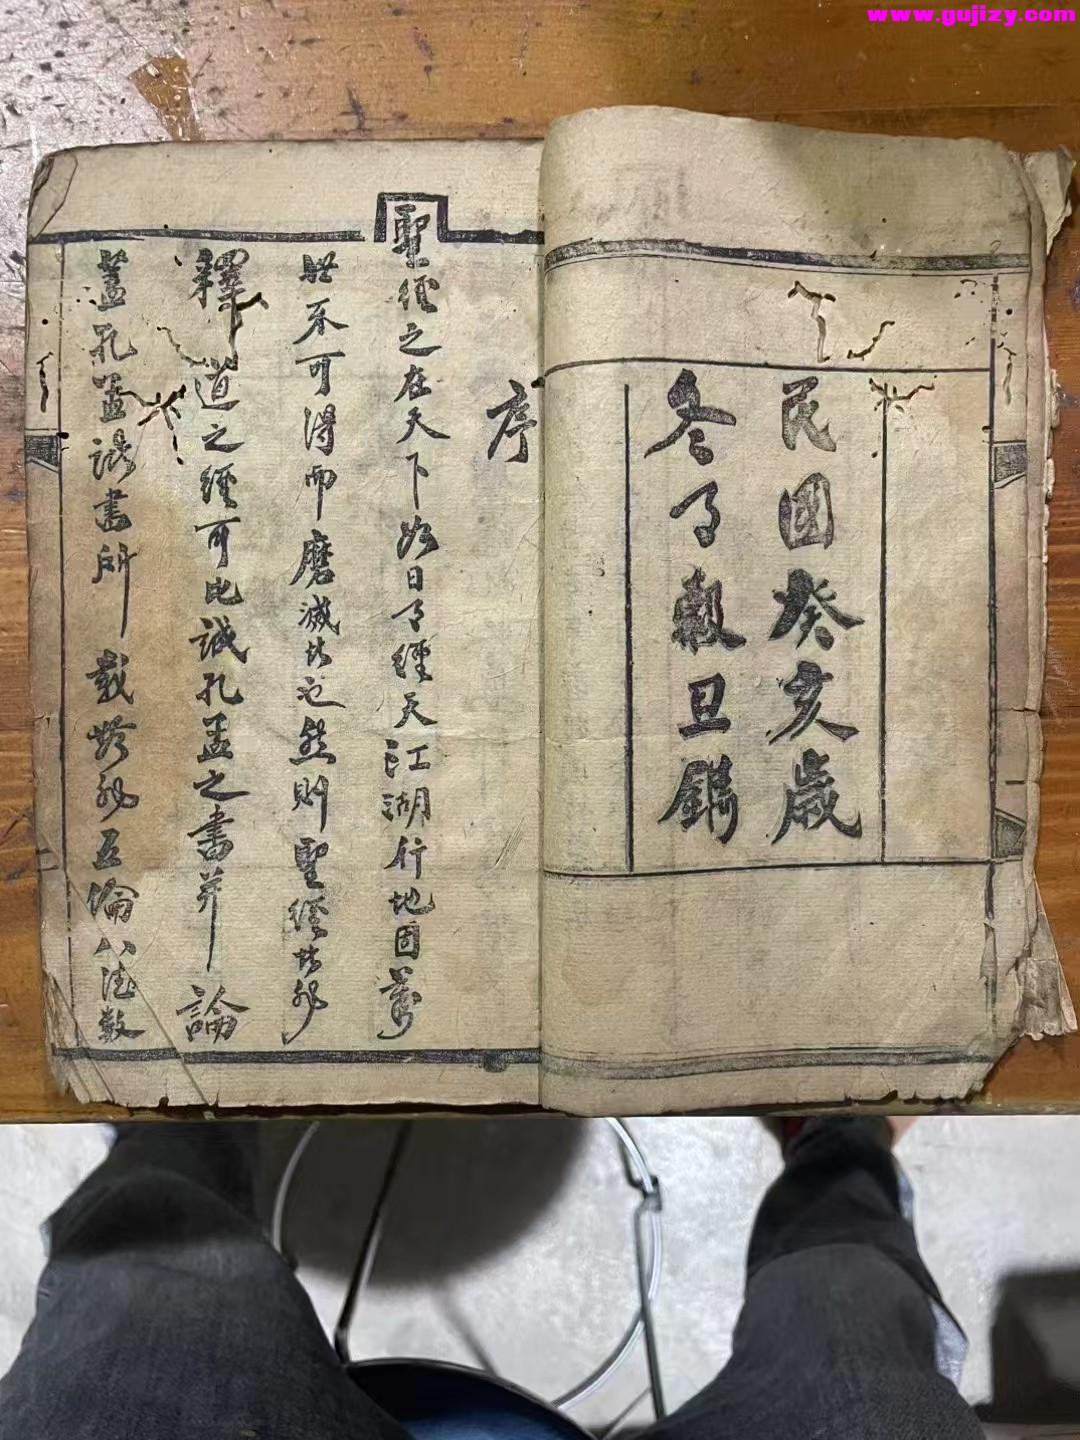 www.gujizy.com
民國癸亥歲
冬月穀旦鐫
序
聖經之在天下如日月經天江湖行地固萬
世不可得而磨滅者也然則聖經者非
釋道之經可比誠孔孟之書并論
蓋孔孟諸書所載非五倫八德